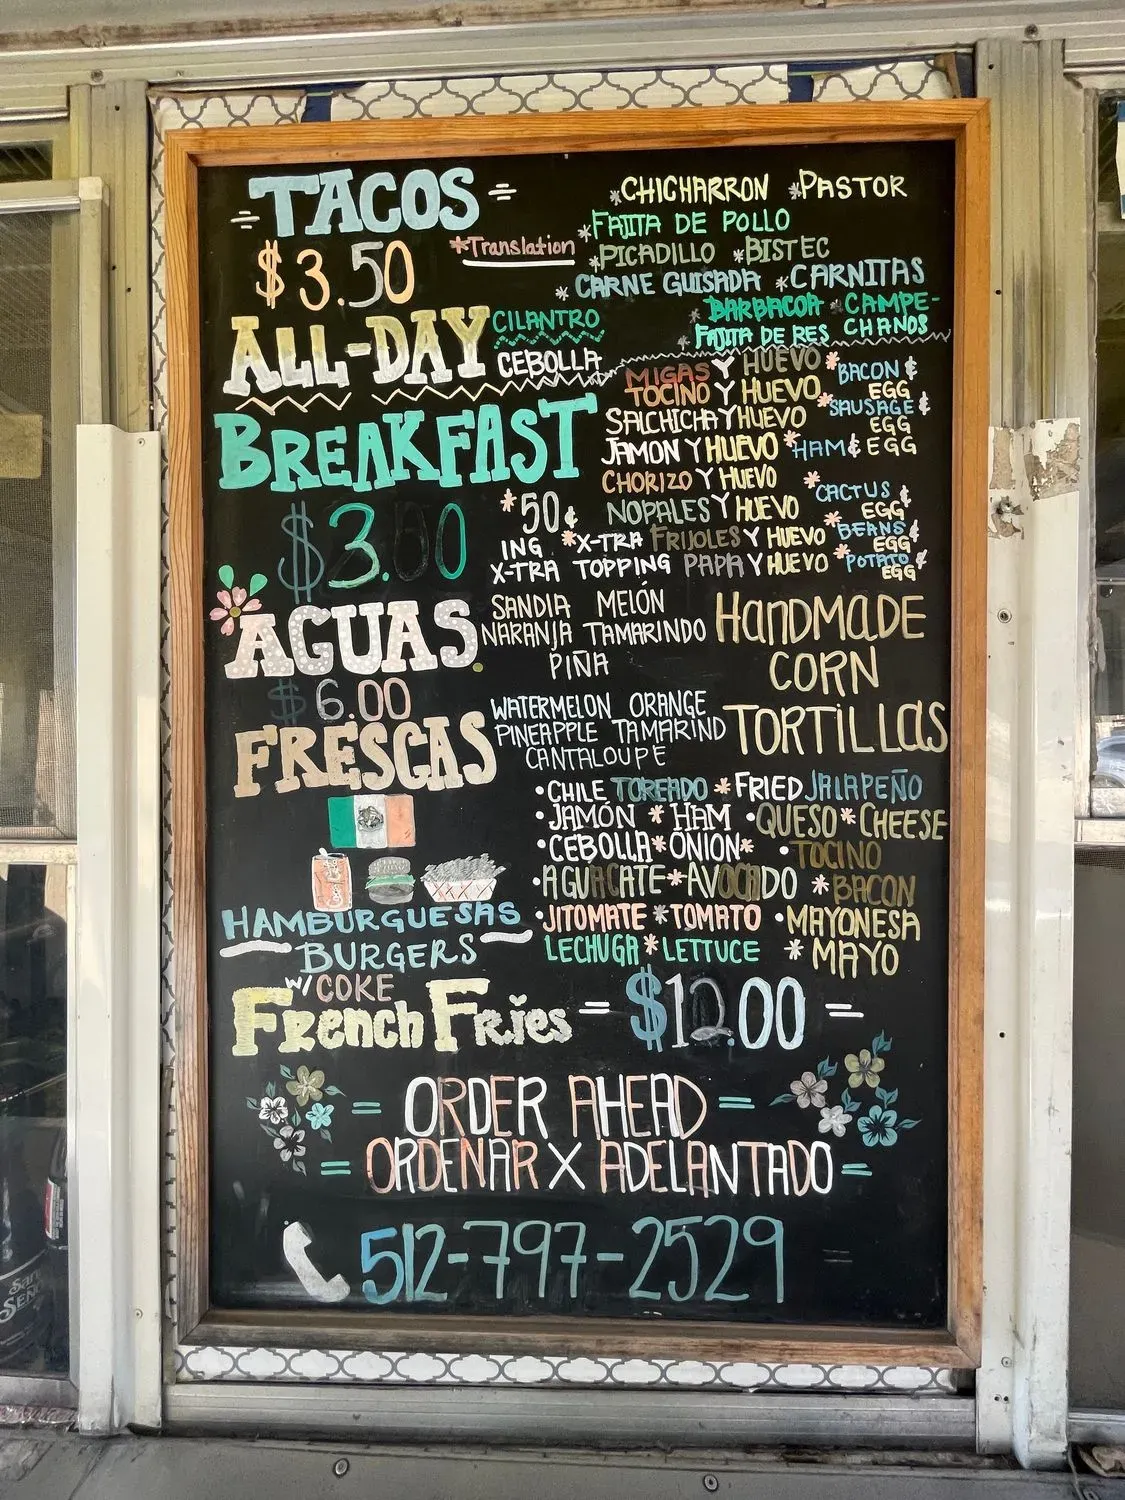 = TACOS =
$3.50
*Translation
*CHICHARRON *PASTOR
*FAJITA DE POLLO
*PICADILLO *BISTEC
*CARNE GUISADA *CARNITAS
*BARBACOA * CAMPE-
CHANOS
*FAJITA DE RES
ALL-DAY
CILANTRO
CEBOLLA
BREAKFAST
$3.00
MIGAS Y HUEVO
TOCINO Y HUEVO *BACON & EGG
SALCHICHA Y HUEVO *SAUSAGE & EGG
JAMON Y HUEVO *HAM & EGG
CHORIZO Y HUEVO
NOPALES Y HUEVO *CACTUS & EGG
FRIJOLES Y HUEVO *BEANS & EGG
PAPA Y HUEVO *POTATO & EGG
*50¢
ING *X-TRA
X-TRA TOPPING
AGUAS
$6.00
FRESCAS
SANDIA MELÓN
NARANJA TAMARINDO
PIÑA
WATERMELON ORANGE
PINEAPPLE TAMARIND
CANTALOUPE
HANDMADE
CORN
TORTILLAS
•CHILE TOREADO *FRIED JALAPEÑO
•JAMÓN * HAM •QUESO*CHEESE
•CEBOLLA*ONION* •TOCINO
•AGUACATE*AVOCADO *BACON
•JITOMATE *TOMATO •MAYONESA
LECHUGA*LETTUCE *MAYO
HAMBURGUESAS
BURGERS
W/ COKE
French Fries = $12.00 =
= ORDER AHEAD =
= ORDENAR X ADELANTADO =
512-797-2529